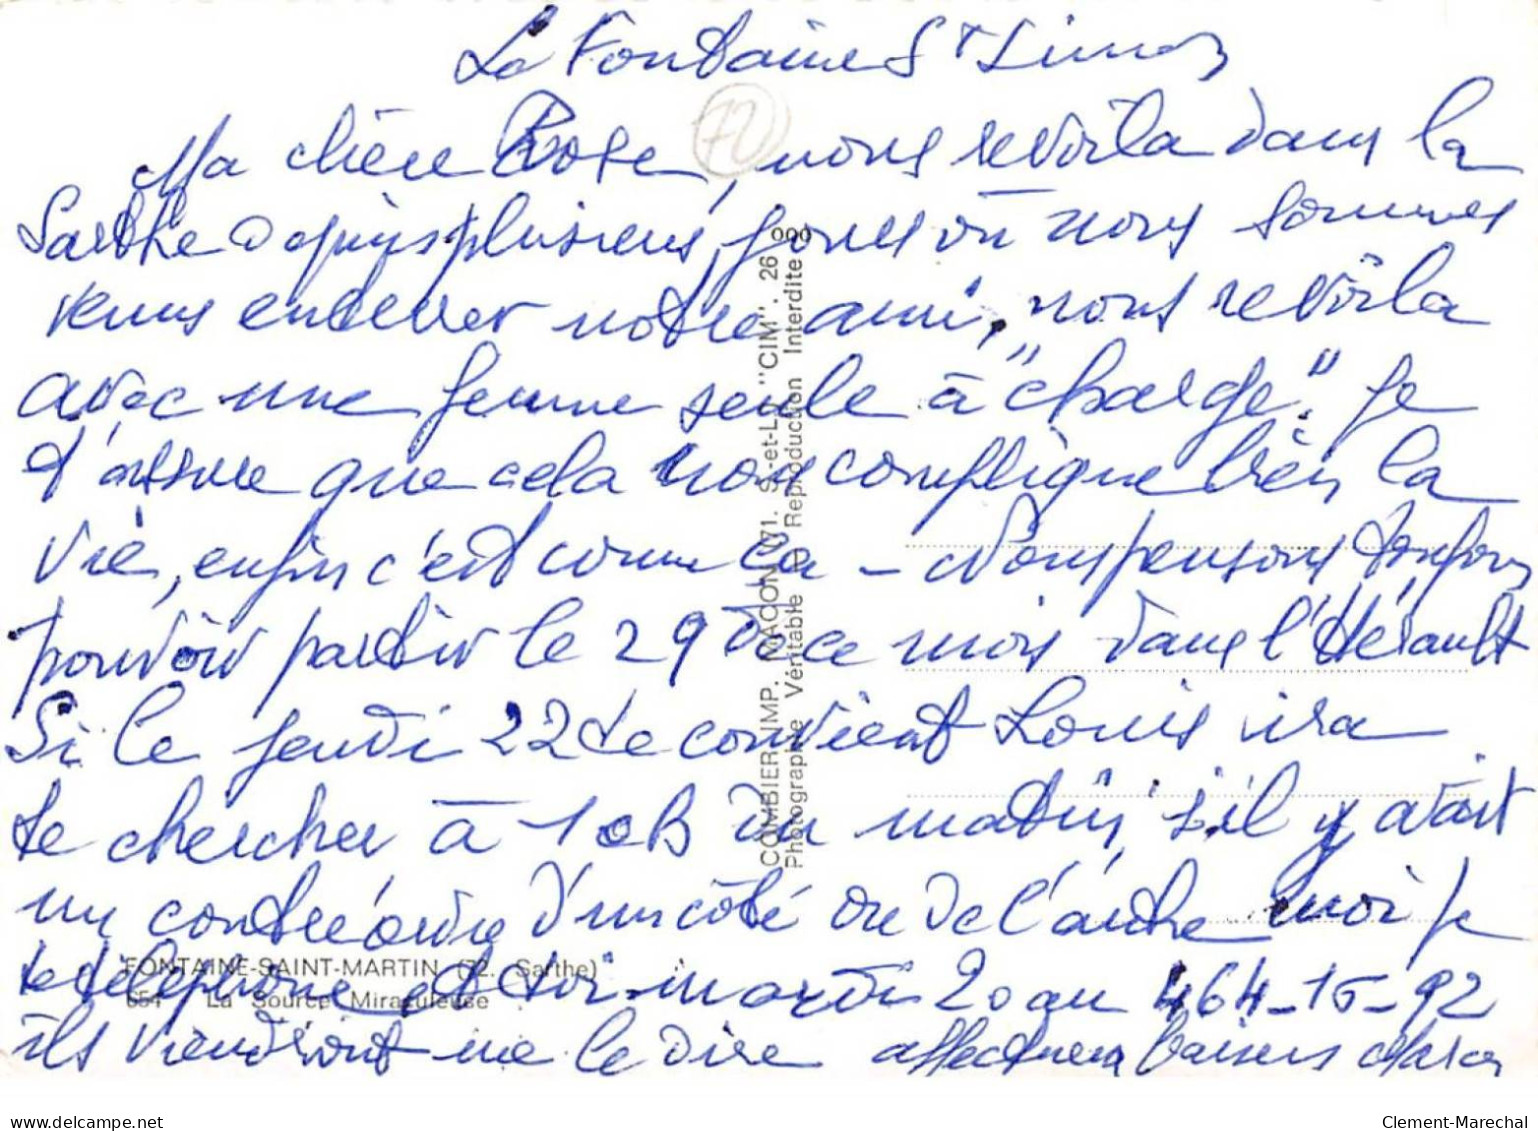 La Fontaine St
72
Ma chère Rose, nous revoila dans la
Sarthe depuis plusieurs jours où nous sommes
venus enterrer notre ami, nous revoila
avec une femme seule à "charge". je
t'assure que cela nous complique bien la
vie, enfin c'est comme ca - Nous pensons toujours
pouvoir partir le 29 de ce mois dans l'Hérault
Si le jeudi 22 te convient Louis ira
te chercher à 10h du matin, s'il y avait
un contre ordre d'un côté ou de l'autre moi je
te téléphone et toi mardi 20 au 464-15-92
ils viendront me le dire affectueux baisers
COMBIER IMP. MACON (71. S.-et-L.) "CIM". 26 000
Photographie Véritable Reproduction Interdite
FONTAINE-SAINT-MARTIN (72. Sarthe)
654 La Source Miraculeuse
delcampe.net
Clement-Marechal